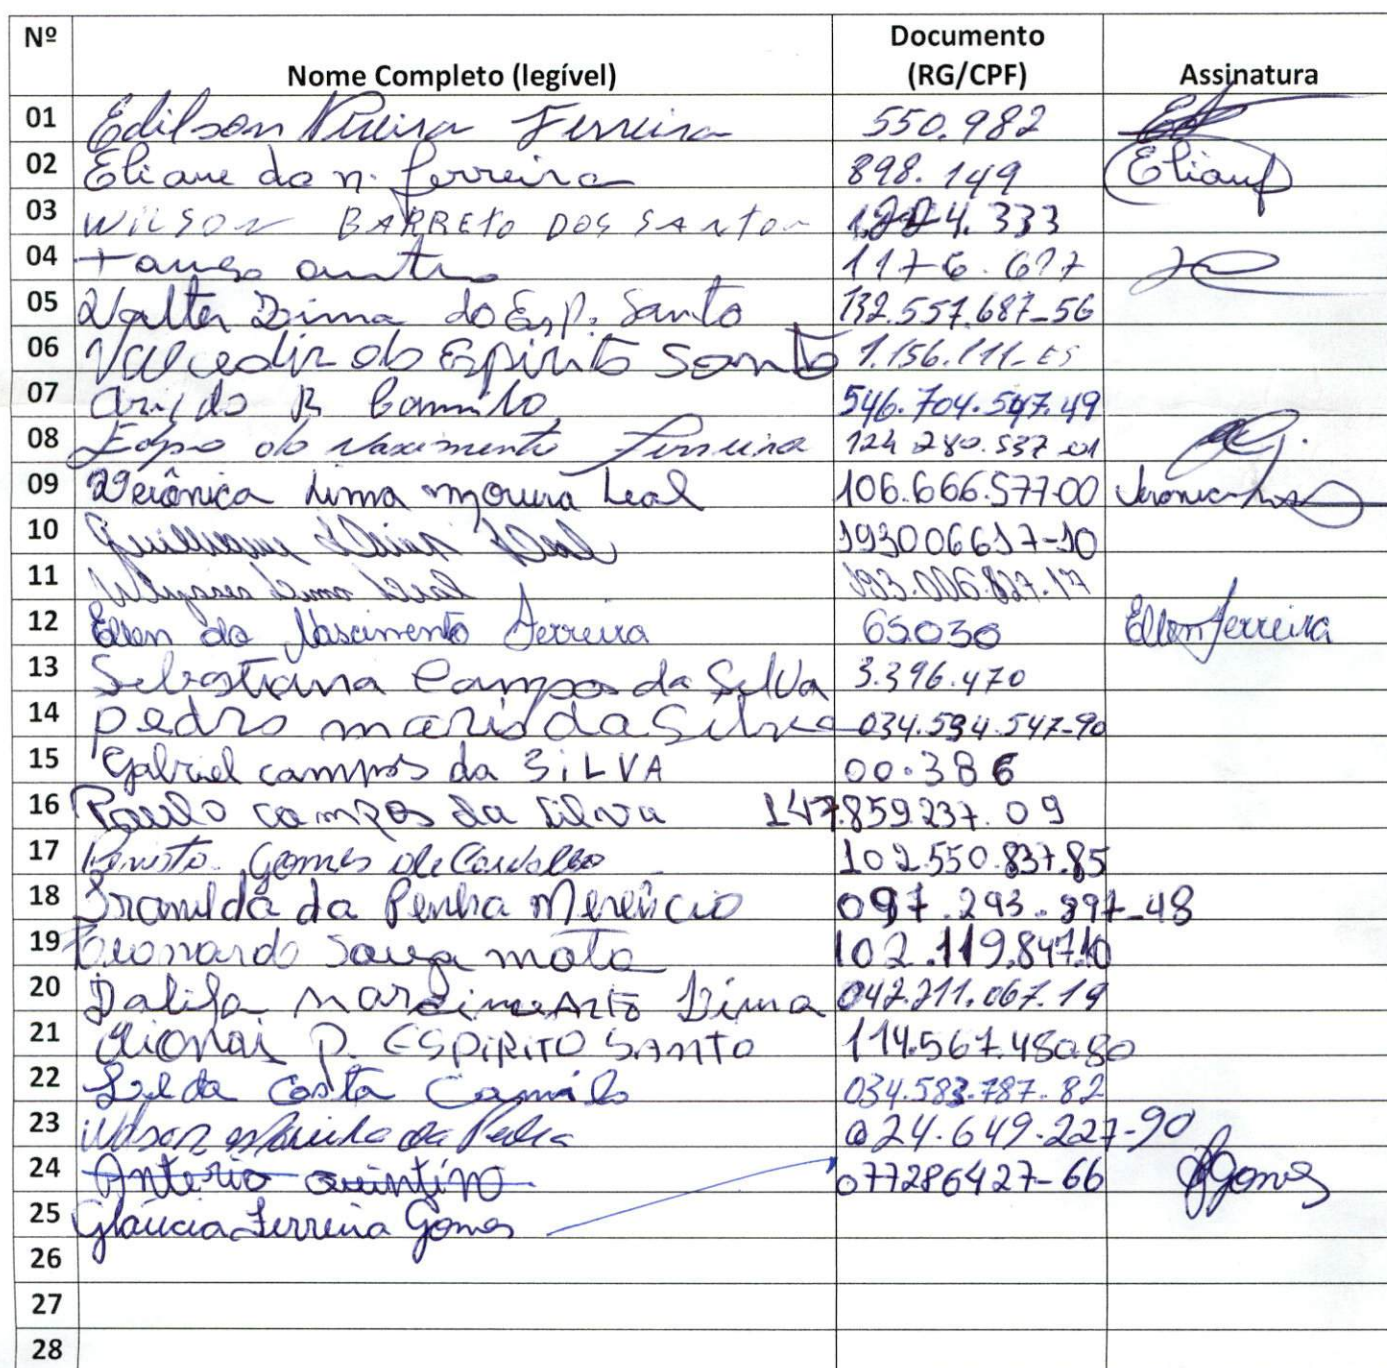 Nº Nome Completo (legível) Documento (RG/CPF) Assinatura
01 Edilson Vieira Ferreira 550.982
02 Eliane do n. ferreira 898.149 Elianf
03 WILSON BARRETO DOS SANTOS 333
04 1176.677
05 Valter Lima do Esp. Santo 132.557.687-56
06 Valcedir do Espirito Santo 1.156.111-ES
07 B Camilo 546.704.547.49
08 do Nascimento Ferreira 124 280.537-01
09 Verônica Lima Moura Leal 106.666.577-00
10 Leal 193006617-10
11 Ulysses Lima Leal 193.006.827.17
12 Ellen do Nascimento Ferreira 65030 Ellen Ferreira
13 Sebastiana Campos da Silva 3.396.470
14 pedro mario da Silva 034.594.547-90
15 Gabriel campos da SiLVA 00.386
16 Paulo campos da silva 147.859.237.09
17 Gomes de Carvalho 102.550.837.85
18 Iranilda da Penha Merêncio 097.293.897-48
19 Leonardo Souza mota 102.119.847.10
20 Dalila Lima 042.211.067.19
21 P. ESPIRITO SANTO 114.567.480.80
22 Costa Camilo 034.583.787.82
23 da Penha 024.649.227-90
24 Anterio quintino 077286427-66 Gomes
25 Glaucia Ferreira Gomes
26
27
28